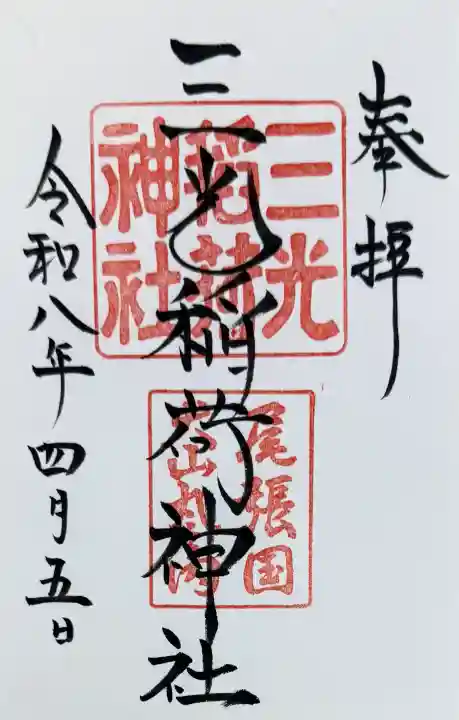 奉拝
三光稲荷神社
三光
稲荷
神社
尾張国
犬山丸の内
令和八年四月五日